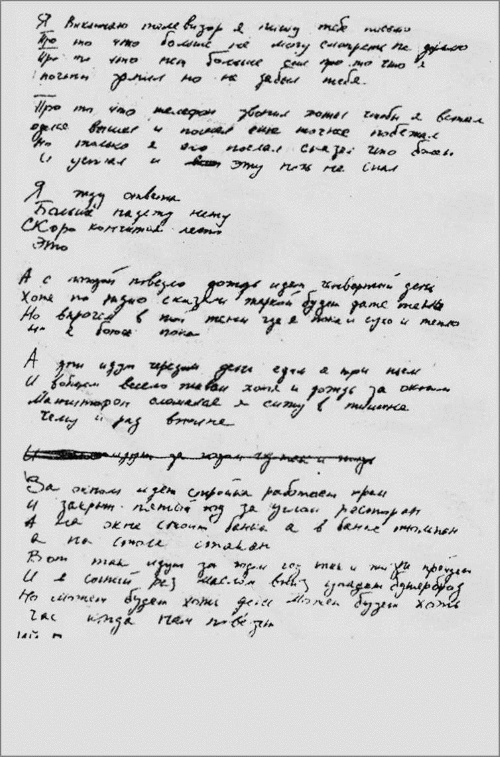 Я выключаю телевизор я пишу тебе письмо
Про то что больше не могу смотреть на дерьмо
Про то что нет больше сил про то что я
почти запил но не забыл тебя.
Про то что телефон звонил хотел чтобы я встал
оделся вышел и пошел точнее побежал
Но только я его послал сказал что болен
И устал и эту ночь не спал
Я жду ответа
Больше надежд нету
СКоро кончится лето
Это
А с погодой повезло дождь идет четвертый день
Хотя по радио сказали жаркой будет даже тень
Но впрочем в той тени где я пока и сухо и тепло
но я боюсь пока
А дни идут чередом день едим а три пьем
И вобщем весело живем хотя и дождь за окном
Магнитофон сломался я сижу в тишине
Чему и рад вполне
За окном идет стройка работает кран
И закрыт пятый год за углом ресторан
А на окне стоит банка а в банке тюльпан
а на столе стакан
Вот так идут за годом год так и жизнь пройдет
И в сотый раз маслом вниз упадет бутерброд
Но может будет хоть день может будет хоть
час когда нам повезет